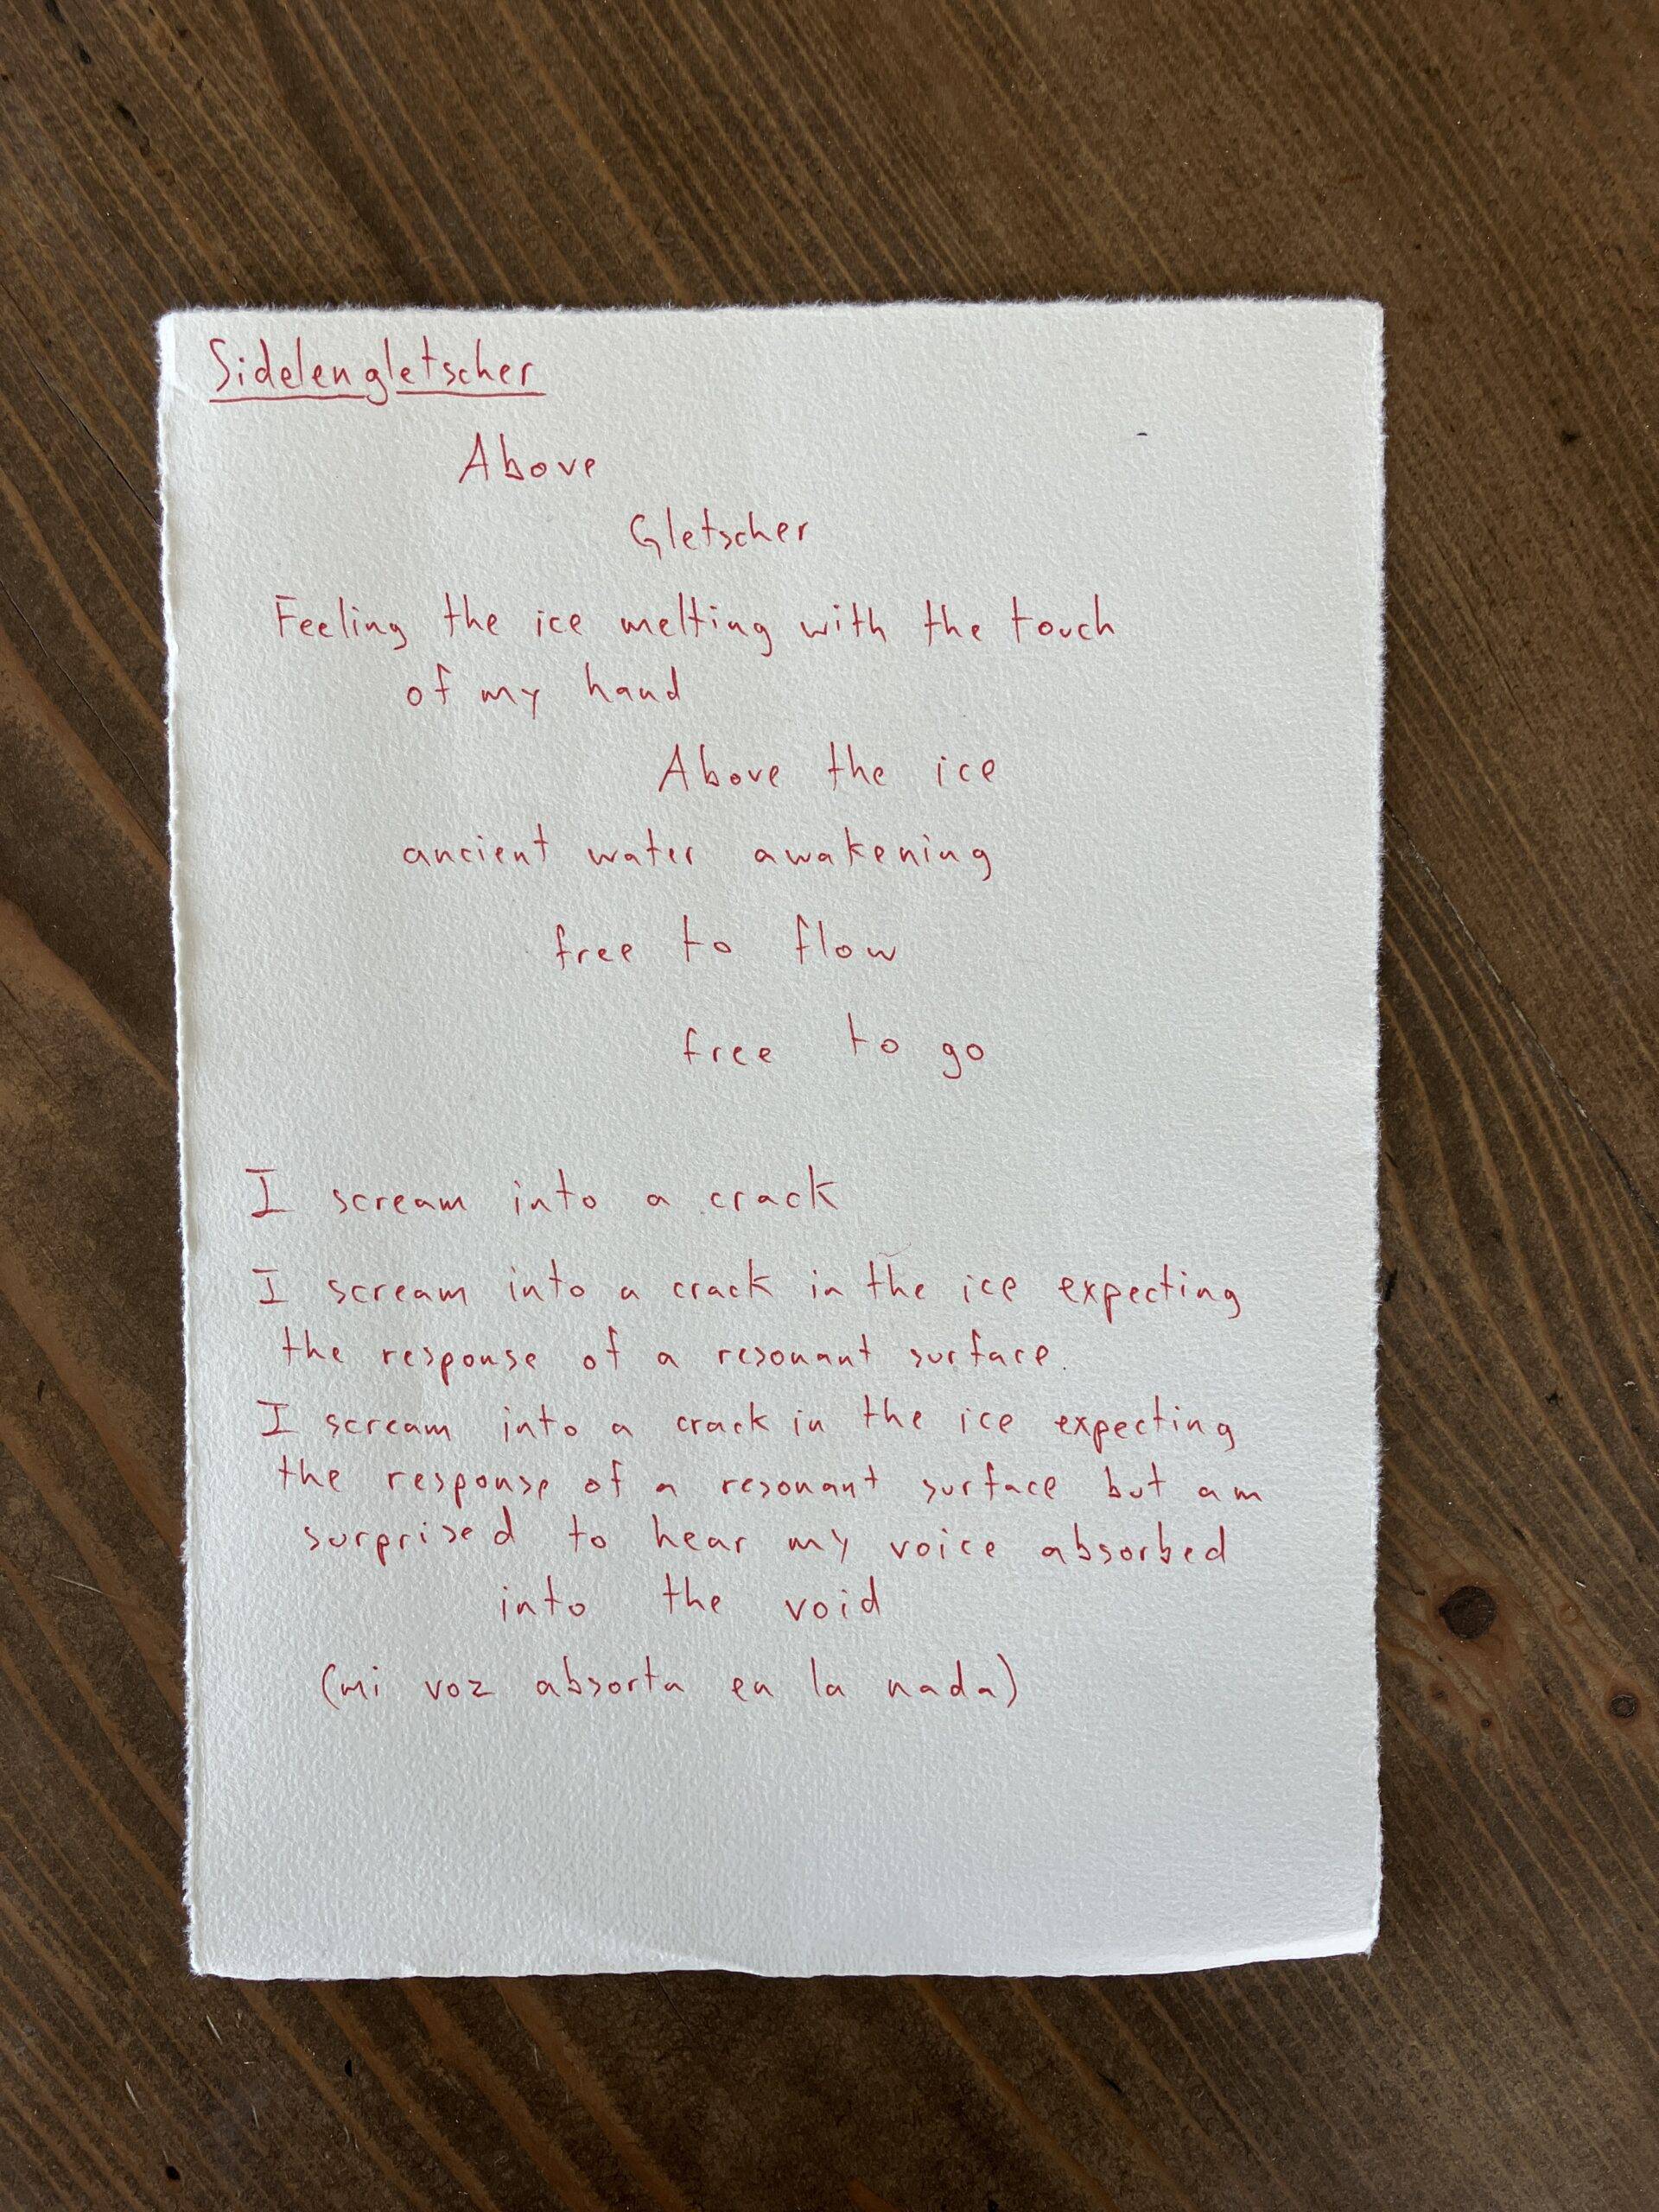 Sidelengletscher
Above
Gletscher
Feeling the ice melting with the touch
of my hand
Above the ice
ancient water awakening
free to flow
free to go
I scream into a crack
I scream into a crack in the ice expecting
the response of a resonant surface.
I scream into a crack in the ice expecting
the response of a resonant surface but am
surprised to hear my voice absorbed
into the void
(mi voz absorta en la nada)